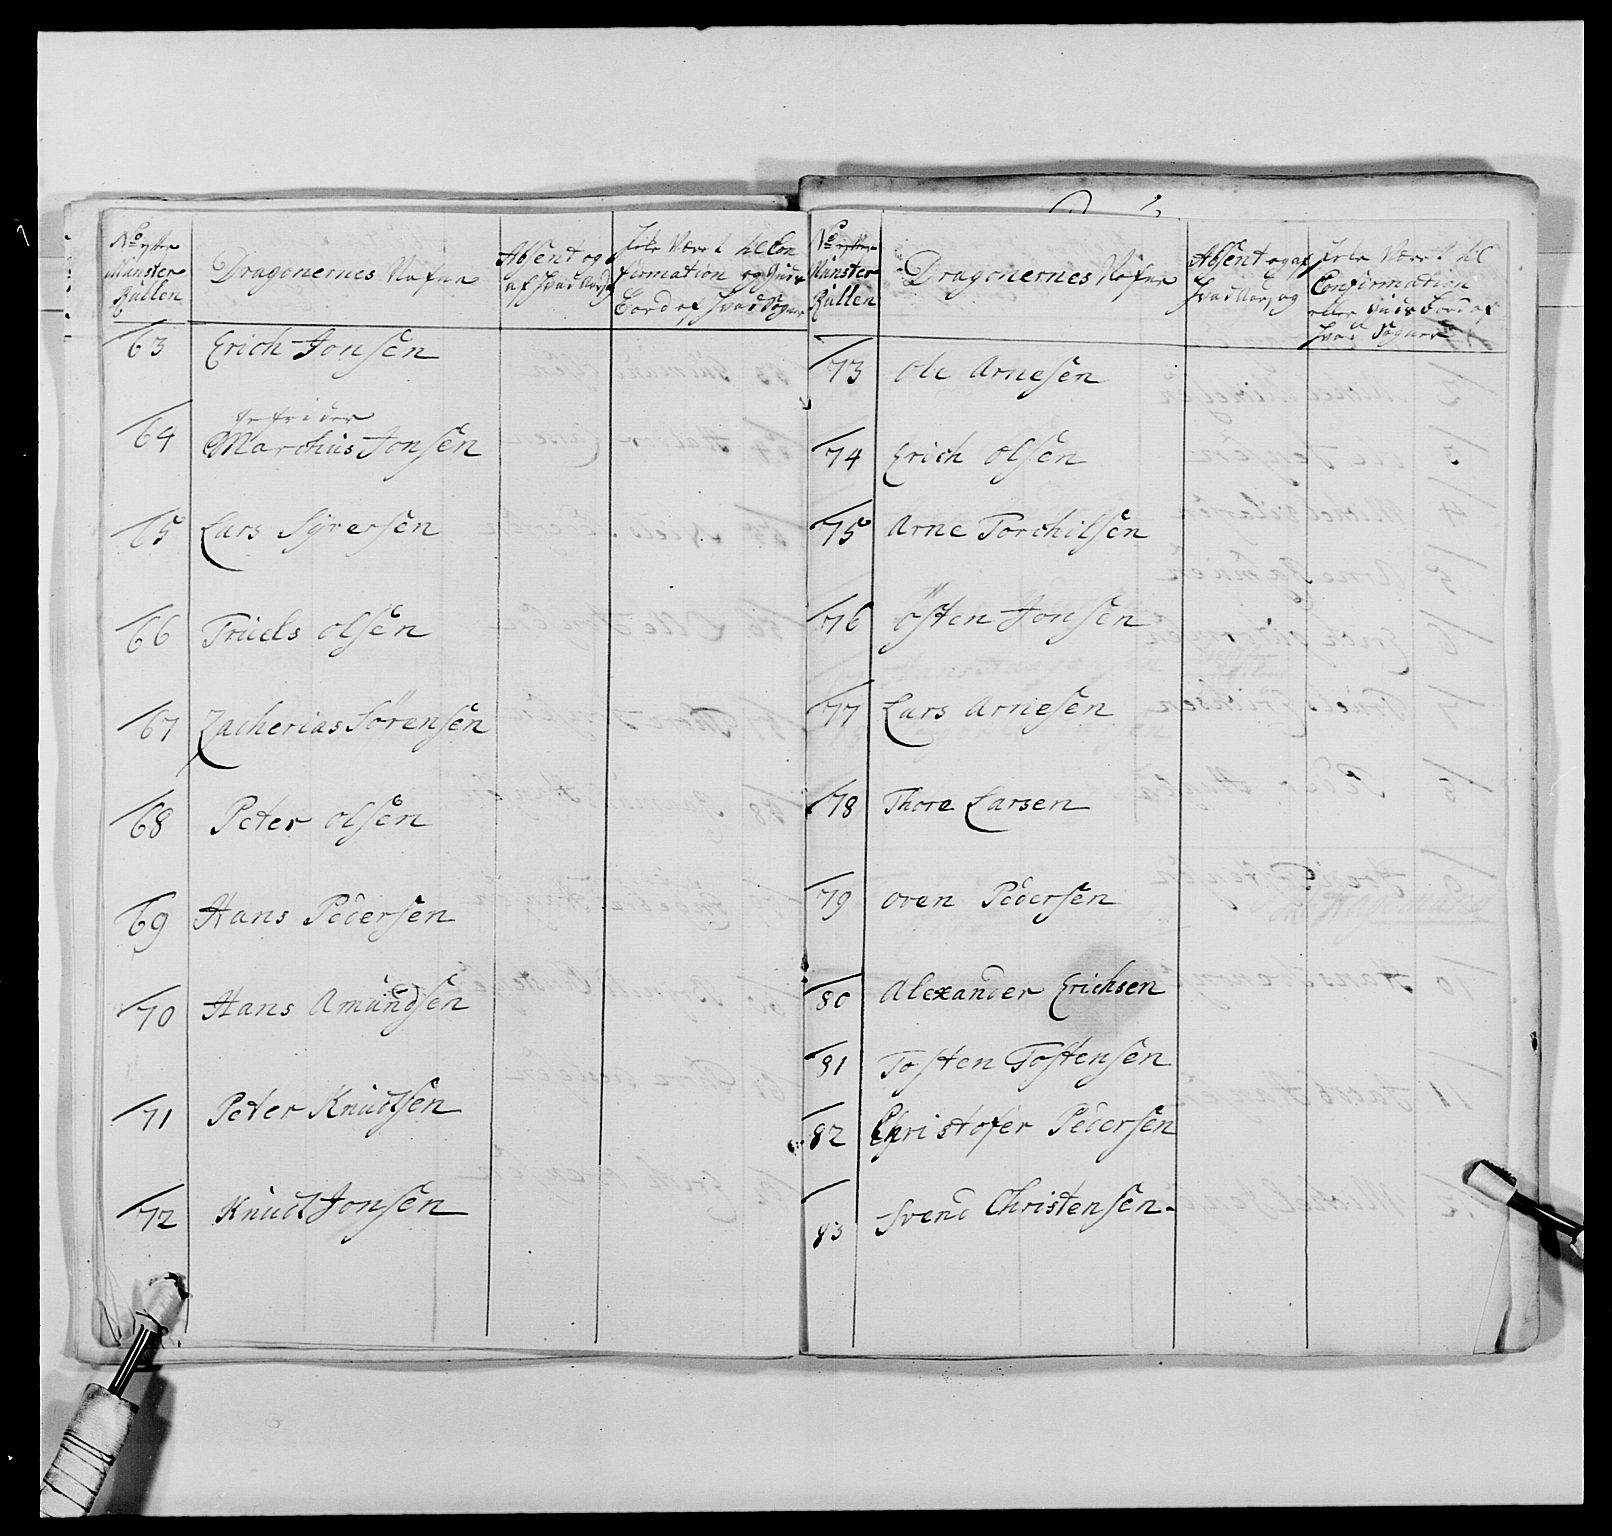 No efter
Mŭnster
Rullen
Dragonernes Nafne
Absent og
af hvad Aarsag
Icke Været til Con
firmation og Guds
Bord af hvad Aarsag
63 Erich Jonsen
64 Marthius Jonsen
65 Lars Syversen
66 Truels olsen
67 Zacherias Sörensen
68 Peter olsen
69 Hans Pedersen
70 Hans Amŭndsen
71 Peter Knŭdsen
72 Knŭdt Jonsen
No efter
Mŭnster
Rŭllen
Dragonernes Nafne
Absent og af
hvad Aarsag
Icke Været til
Confirmation
eller Guds Bord af
73 ole Arnesen
74 Erich olsen
75 Arne Torchilsen
76 östen Jonsen
77 Lars Arnesen
78 Thore Larsen
79 oven Pedersen
80 Alexander Erichsen
81 Tosten Tostensen
82 Christofer Pedersen
83 Svend Christensen